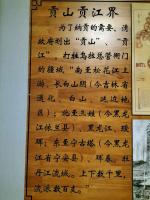 贡山贡江界
为了纳贡的需要，清
政府划出“贡山”、“贡
江”，打牲乌拉总管衙门
的疆域，“南至松花江上
游、长白山阴（今吉林省
通化、白山、延边地
区）；北至三姓（今黑龙
江依兰县）、黑龙江、瑷
珲；东至宁古塔（今黑龙
江省宁安县）、珲春、牡
丹江流域。上下数千里，
流派数百支。”